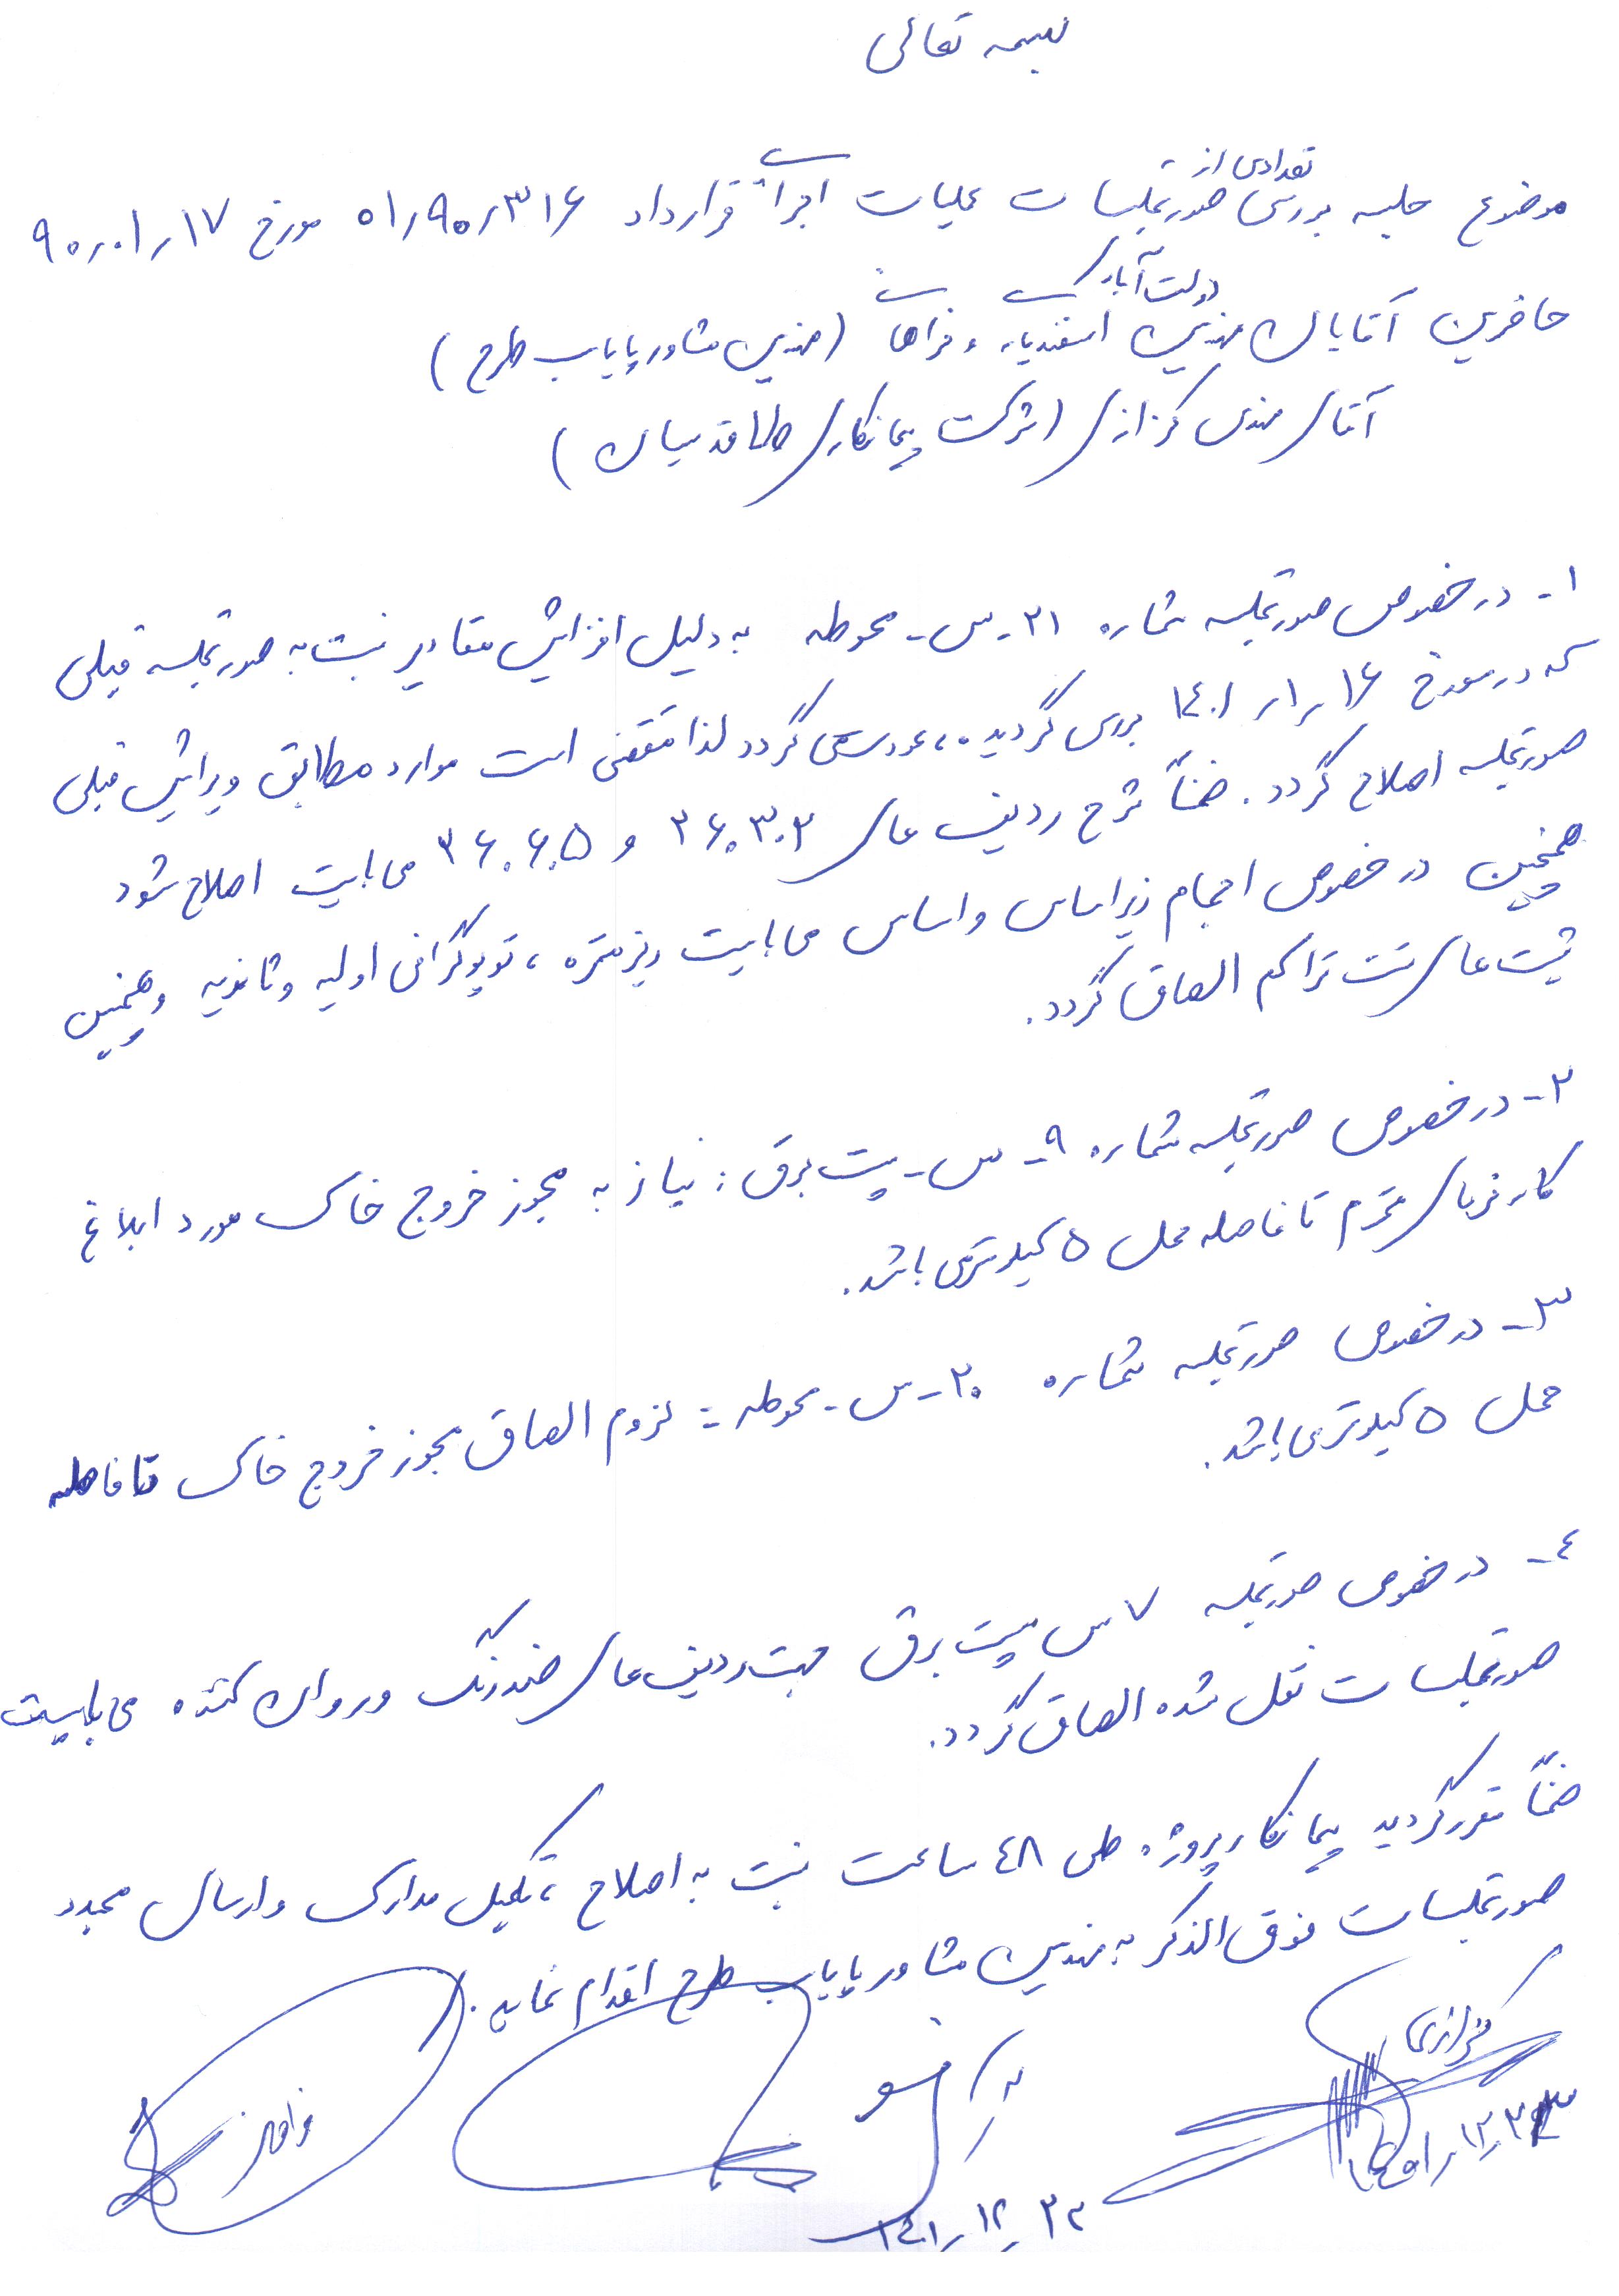 بسمه تعالی
موضوع جلسه بررسی تعدادی از صورتجلسات عملیات اجرائی قرارداد ۰۱٫۹۰٫۳۱۶ مورخ ۹۰٫۰۱٫۱۷
حاضرین آقایان مهندسین اسفندیاری دولت آبادی و فراهانی (مهندسین مشاور پایاب طرح)
آقای مهندس کزازی (شرکت پیمانکاری طلاقدسیان)
۱- در خصوص صورتجلسه شماره ۲۱-س-محوطه به دلیل افزایش مقادیر نسبت به صورتجلسه قبلی
که در مورخ ۱۴۰۱٫۱٫۱۶ بررسی گردیده، عودت می گردد لذا مقتضی است موارد مطابق ویرایش قبلی
صورتجلسه اصلاح گردد. ضمناً شرح ردیف های ۲۶۰۳۰۲ و ۲۶۰۶۰۵ می بایست اصلاح شود
همچنین در خصوص احجام زیراساس و اساس می بایست ریزمتره، توپوگرافی اولیه و ثانویه و همچنین
شیت های تست تراکم الصاق گردد.
۲- در خصوص صورتجلسه شماره ۹-س-پست برق: نیاز به مجوز خروج خاک مورد ابلاغ
کارفرمای محترم تا فاصله حمل ۵ کیلومتر می باشد.
۳- در خصوص صورتجلسه شماره ۲۰-س-محوطه: لزوم الصاق مجوز خروج خاک تا فاصله
حمل ۵ کیلومتر می باشد.
۴- در خصوص صورتجلسه ۷ س پست برق جهت ردیف های ضدزنگ و روان کننده می بایست
صورتجلسات نقل شده الصاق گردد.
ضمناً مقرر گردید پیمانکار پروژه طی ۴۸ ساعت نسبت به اصلاح، تکمیل مدارک و ارسال مجدد
صورتجلسات فوق الذکر به مهندسین مشاور پایاب طرح اقدام نماید.
کزازی
۱۴۰۱٫۱۲٫۲۳
فراهانی